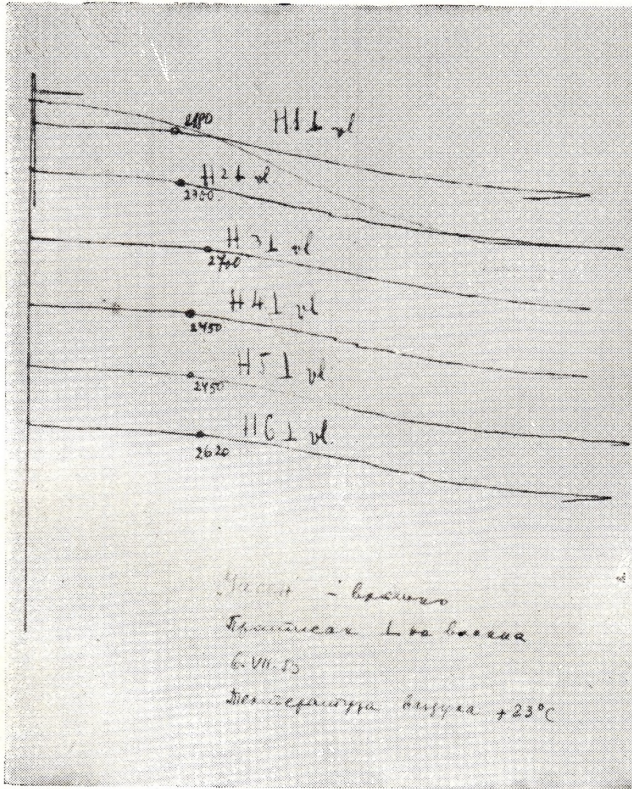 2180
H 1 ⊥ vl
H 2 ⊥ vl
H 3 ⊥ vl
2700
H 4 ⊥ vl
2450
H 5 ⊥ vl
2450
H 6 ⊥ vl
2620
Јасен - влакно
Притисак ⊥ на влакна
6. VII. 53
Температура ваздуха +23°C